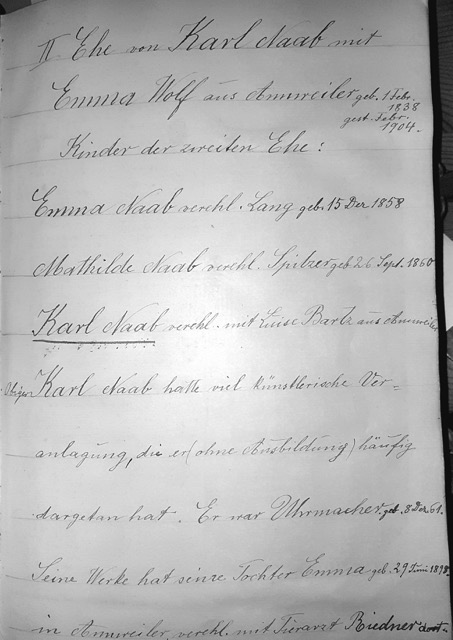 II Ehe von Karl Naab mit
Emma Wolf aus Annweiler geb. 1 Febr. 1838
gest. Febr. 1904.
Kinder der zweiten Ehe:
Emma Naab verehl. Lang geb. 15 Dez 1858
Mathilde Naab verehl. Spitzer geb 26 Sept. 1860
Karl Naab verehl. mit Luise Bartz aus Annweiler
Obiger Karl Naab hatte viel künstlerische Ver=
anlagung, die er (ohne Ausbildung) häufig
dargetan hat. Er war Uhrmacher geb. 8 Dez. 61.
Seine Werke hat seine Tochter Emma geb. 29 Juni 1898
in Annweiler, verehl. mit Tierarzt Riedner dort.